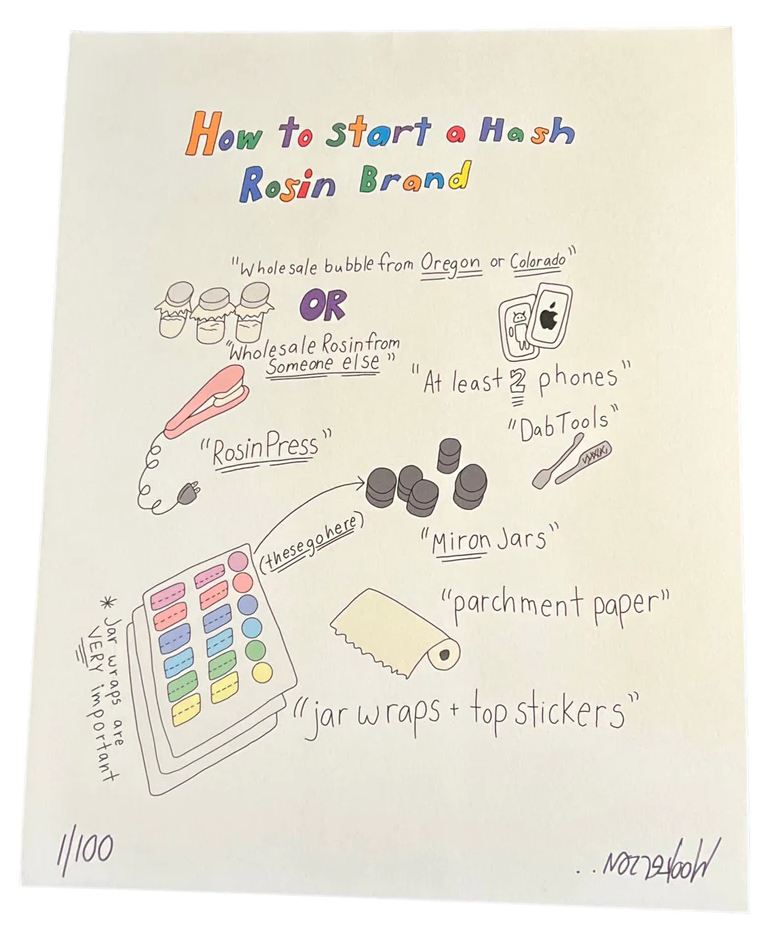 How to start a Hash
Rosin Brand
"Wholesale bubble from Oregon or Colorado"
OR
"Wholesale Rosin from
Someone else"
"At least 2 phones"
"Dab Tools"
"Rosin Press"
(these go here)
"Miron Jars"
"parchment paper"
* Jar wraps are
VERY important
"jar wraps + top stickers"
1/100